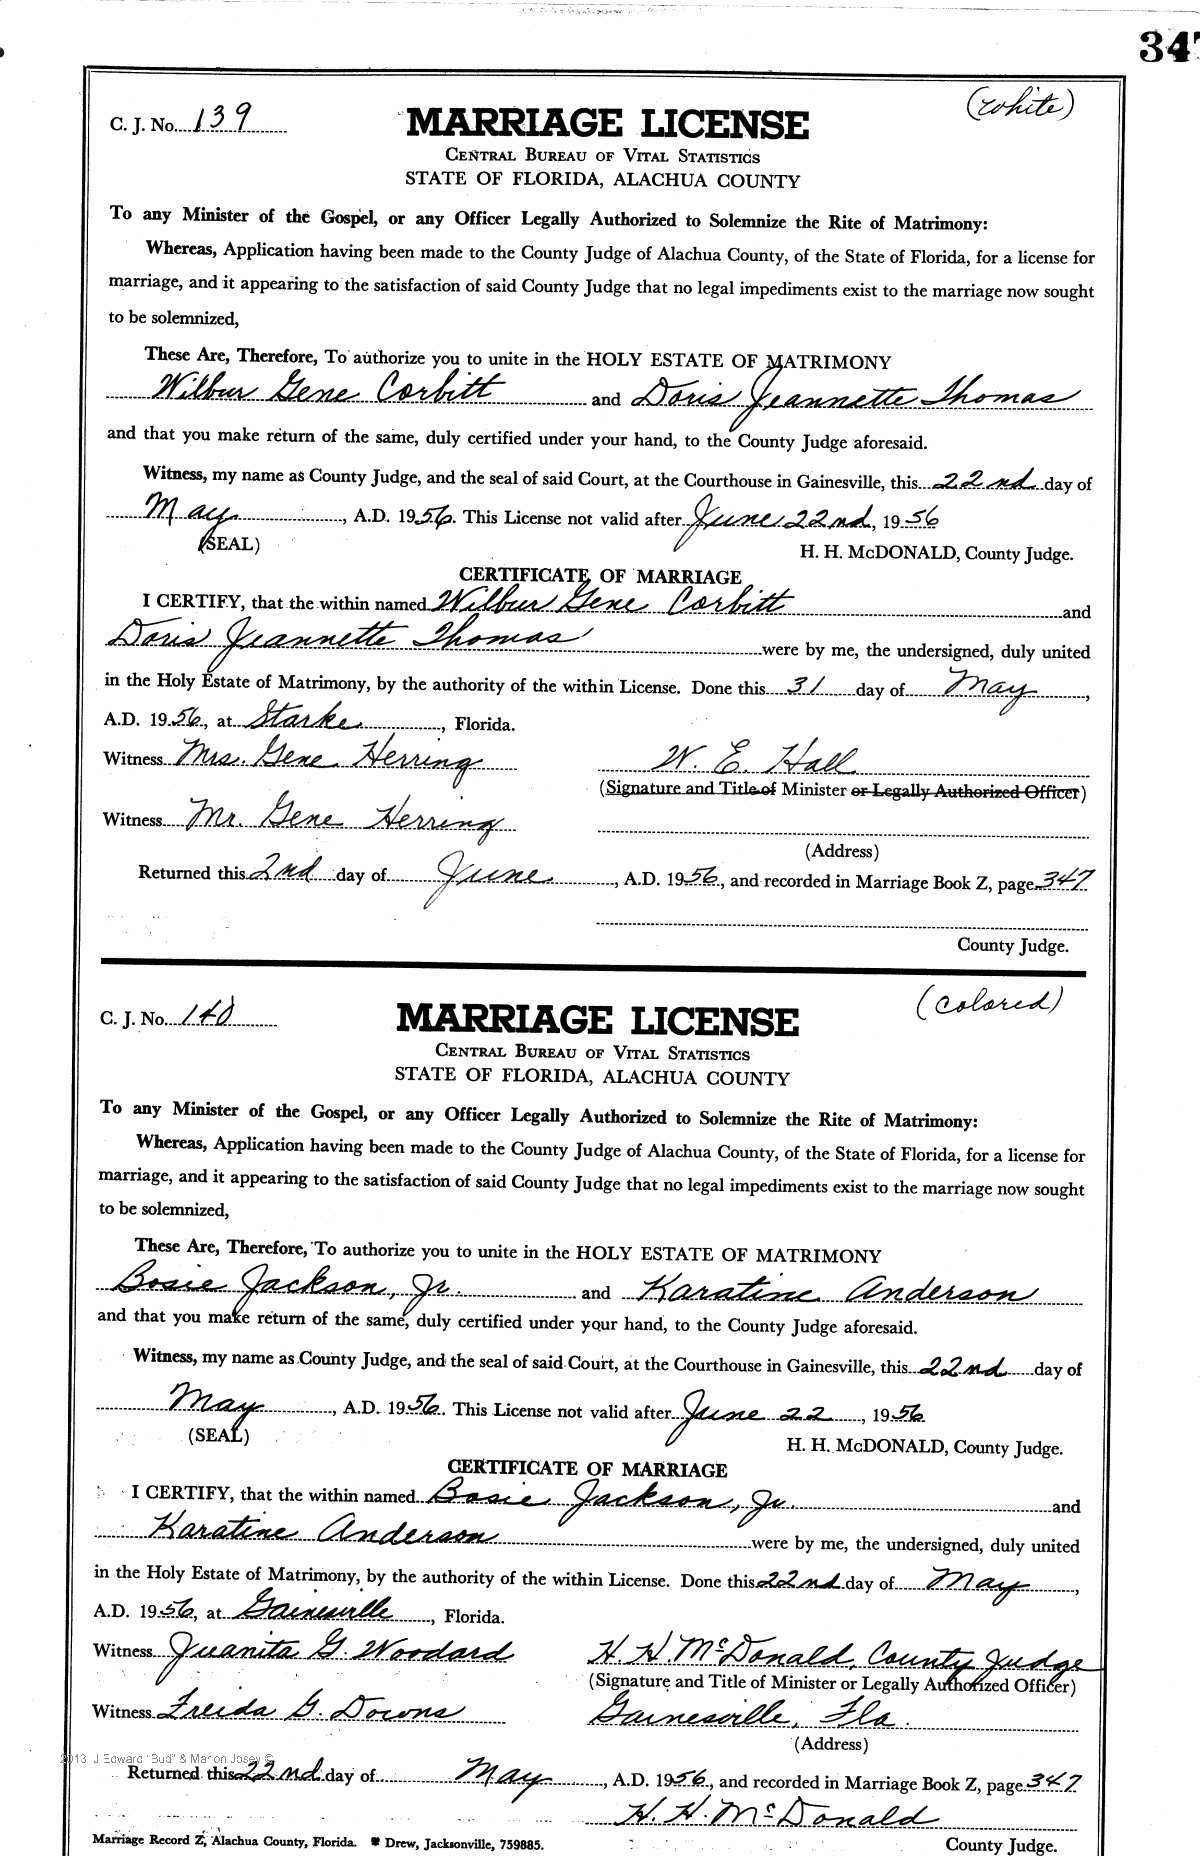 347
C. J. No. 139
(white)
MARRIAGE LICENSE
CENTRAL BUREAU OF VITAL STATISTICS
STATE OF FLORIDA, ALACHUA COUNTY
To any Minister of the Gospel, or any Officer Legally Authorized to Solemnize the Rite of Matrimony:
Whereas, Application having been made to the County Judge of Alachua County, of the State of Florida, for a license for
marriage, and it appearing to the satisfaction of said County Judge that no legal impediments exist to the marriage now sought
to be solemnized,
These Are, Therefore, To authorize you to unite in the HOLY ESTATE OF MATRIMONY
Wilbur Gene Corbitt and Doris Jeannette Thomas
and that you make return of the same, duly certified under your hand, to the County Judge aforesaid.
Witness, my name as County Judge, and the seal of said Court, at the Courthouse in Gainesville, this 22nd day of
May, A.D. 1956. This License not valid after June 22nd, 1956
(SEAL)
H. H. McDONALD, County Judge.
CERTIFICATE OF MARRIAGE
I CERTIFY, that the within named Wilbur Gene Corbitt and
Doris Jeannette Thomas were by me, the undersigned, duly united
in the Holy Estate of Matrimony, by the authority of the within License. Done this 31 day of May,
A.D. 1956, at Starke, Florida.
Witness Mrs. Gene Herring W. E. Hall
(Signature and Title of Minister or Legally Authorized Officer)
Witness Mr. Gene Herring
(Address)
Returned this 2nd day of June, A.D. 1956, and recorded in Marriage Book Z, page 347
County Judge.
C. J. No. 140
(colored)
MARRIAGE LICENSE
CENTRAL BUREAU OF VITAL STATISTICS
STATE OF FLORIDA, ALACHUA COUNTY
To any Minister of the Gospel, or any Officer Legally Authorized to Solemnize the Rite of Matrimony:
Whereas, Application having been made to the County Judge of Alachua County, of the State of Florida, for a license for
marriage, and it appearing to the satisfaction of said County Judge that no legal impediments exist to the marriage now sought
to be solemnized,
These Are, Therefore, To authorize you to unite in the HOLY ESTATE OF MATRIMONY
Bosie Jackson, Jr. and Karatine Anderson
and that you make return of the same, duly certified under your hand, to the County Judge aforesaid.
Witness, my name as County Judge, and the seal of said Court, at the Courthouse in Gainesville, this 22nd day of
May, A.D. 1956. This License not valid after June 22, 1956
(SEAL)
H. H. McDONALD, County Judge.
CERTIFICATE OF MARRIAGE
I CERTIFY, that the within named Bosie Jackson, Jr. and
Karatine Anderson were by me, the undersigned, duly united
in the Holy Estate of Matrimony, by the authority of the within License. Done this 22nd day of May,
A.D. 1956, at Gainesville, Florida.
Witness Juanita G. Woodard H. H. McDonald, County Judge
(Signature and Title of Minister or Legally Authorized Officer)
Witness Freida G. Downs Gainesville, Fla.
(Address)
2013 J Edward "Bud" & Marion Josey ©
Returned this 22nd day of May, A.D. 1956, and recorded in Marriage Book Z, page 347
H. H. McDonald
Marriage Record Z, Alachua County, Florida. Drew, Jacksonville, 759885.
County Judge.